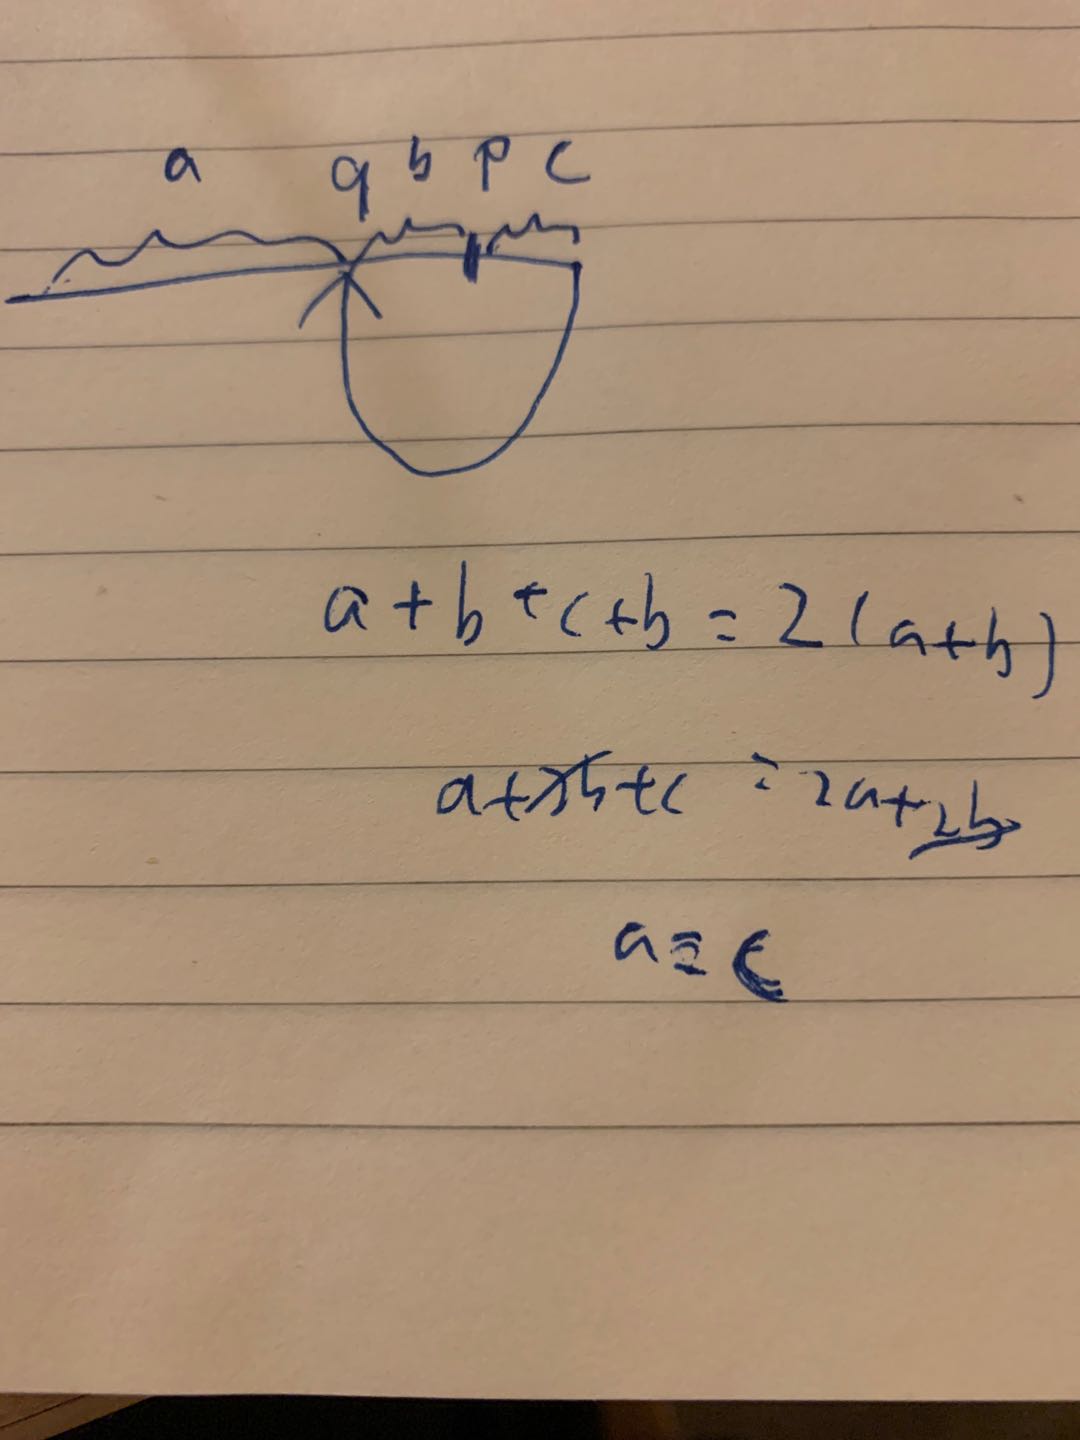 a q b p c
a + b + c + b = 2 ( a + b )
a + 2b + c = 2a + 2b
a = c